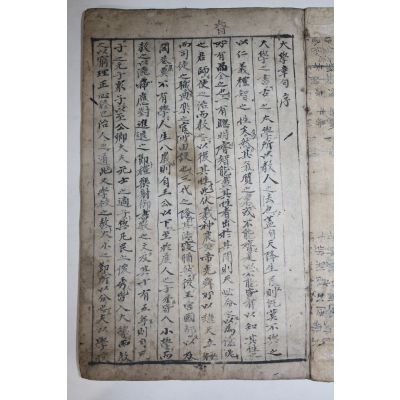 大學章句序
大學之書古之大學所以教人之法也盖自天降生民則既莫不與之
以仁義禮智之性矣然其氣質之稟或不能齊是以不能皆有以知其性
之所有而全之也一有聰明睿智能盡其性者出於其間則天必命之以爲億兆
之君師使之治而教之以復其性此伏羲神農黃帝堯舜所以繼天立極
而司徒之職典樂之官所由設也三代之隆其法寖備然後王宮國都以及
閭巷莫不有學人生八歲則自王公以下至於庶人之子弟皆入小學而
教之以灑掃應對進退之節禮樂射御書數之文及其十有五年則自天
子之元子衆子以至公卿大夫元士之適子與凡民之俊秀皆入大學而教
之以窮理正心修己治人之道此又學校之教大小之節所以分也夫以學